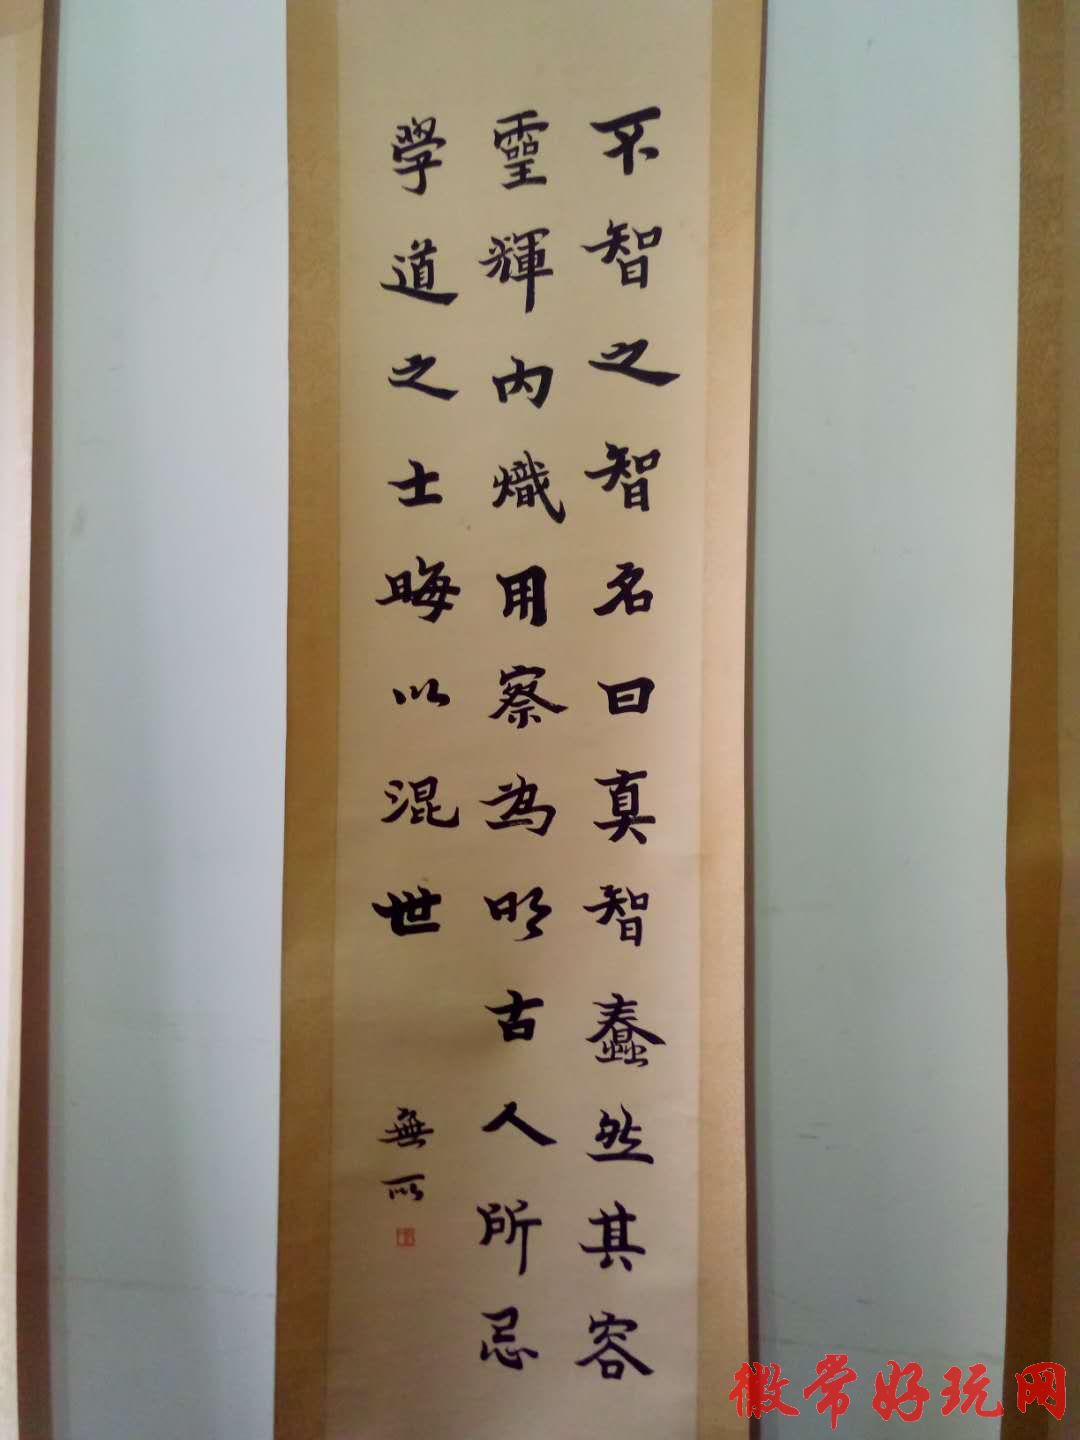 不智之智名曰真智蠢然其容
靈輝內熾用察為明古人所忌
學道之士晦以混世
無所
徽常好玩网